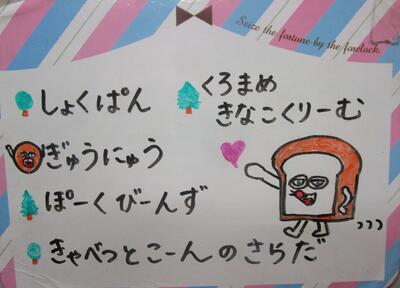 Seize the fortune by the forelock.
しょくぱん
くろまめ
きなこくりーむ
ぎゅうにゅう
ぽーくびーんず
きゃべつとこーんのさらだ